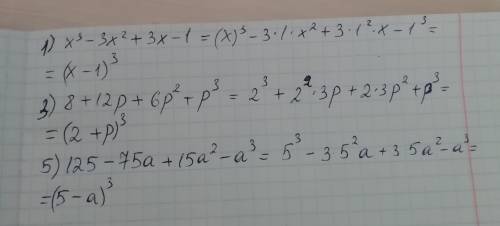 1) x³ - 3x² + 3x - 1 = (x)³ - 3·1·x² + 3·1²·x - 1³ =
= (x - 1)³
3) 8 + 12p + 6p² + p³ = 2³ + 2²·3p + 2·3p² + p³ =
= (2 + p)³
5) 125 - 75a + 15a² - a³ = 5³ - 3·5²a + 3·5a² - a³ =
= (5 - a)³